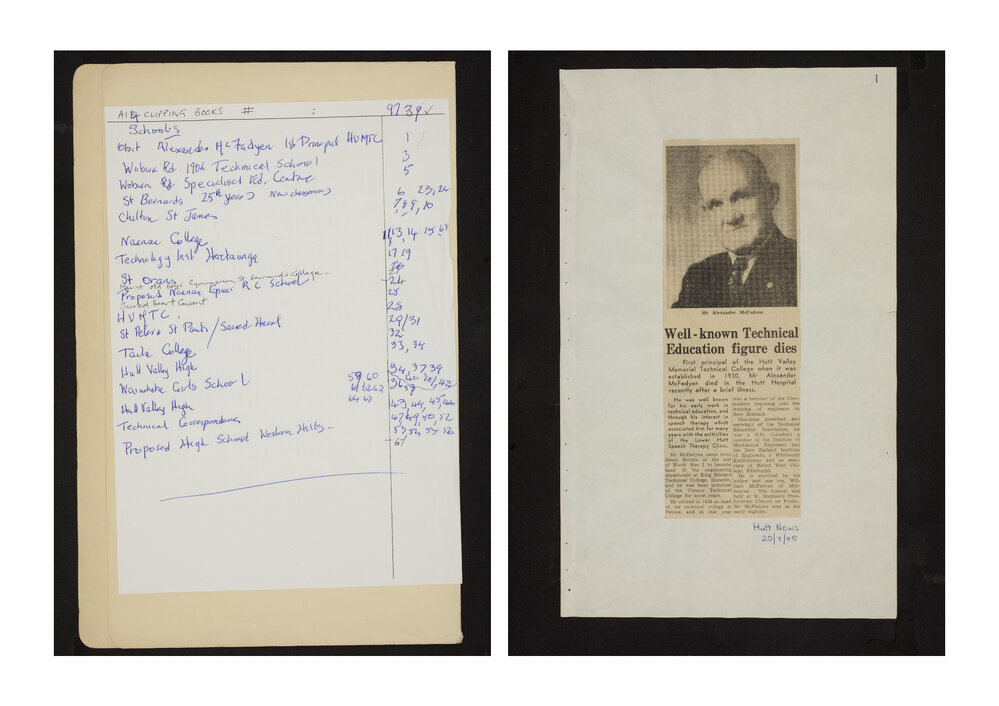 CLIPPING BOOKS # :
Schools
Obit Alexander McFadyen 1st Principal HVMTC 1
Woburn Rd 1906 Technical School 3
Woburn Rd Specialised Ed. Centre 5
St Bernards 25th year New classrooms 6 23, 24
Chilton St James 7, 8, 9, 10
Naenae College 13, 14, 15
Technology Inst Heretaunga 17 19
St Orans
Marist Old Boys Gymnasium St Bernard's College - 24
Proposed Naenae R C School
Sacred Heart Convent
HVMTC.
St Peter & St Pauls / Sacred Heart 29/31
Taita College 33,
Hutt Valley High 37 39
Wainuiomata Girls School 59 60
Hutt Valley High
Technical Correspondence
Proposed High School Western Hills - 61
1
Mr Alexander McFadyen
Well-known Technical
Education figure dies
First principal of the Hutt Valley
Memorial Technical College when it was
established in 1930, Mr Alexander
McFadyen died in the Hutt Hospital
recently after a brief illness.
He was well known
for his early work in
technical education, and
through his interest in
speech therapy which
associated him for many
years with the activities
of the Lower Hutt
Speech Therapy Clinic.
Mr McFadyen came from
Great Britain at the end
of World War I to become
head of the engineering
department at King Edward
Technical College, Dunedin,
and he was later principal
of the Timaru Technical
College for some years.
He retired in 1948 as head
of the technical college at
Petone, and in that year
was a member of the Com-
mission inquiring into the
training of engineers in
New Zealand.
One-time president and
secretary of the Technical
Education Association, he
was a B.Sc (London) a
member of the Institute of
Mechanical Engineers and
the New Zealand Institute
of Engineers, a Whitworth
Exhibitioner and an asso-
ciate of Heriot Watt Col-
lege, Edinburgh.
He is survived by his
widow and one son, Wil-
liam McFadyen of Mel-
bourne. The funeral was
held at St. Stephen's Pres-
byterian Church on Friday.
Mr McFadyen was in his
early eighties.
Hutt News
20/7/65